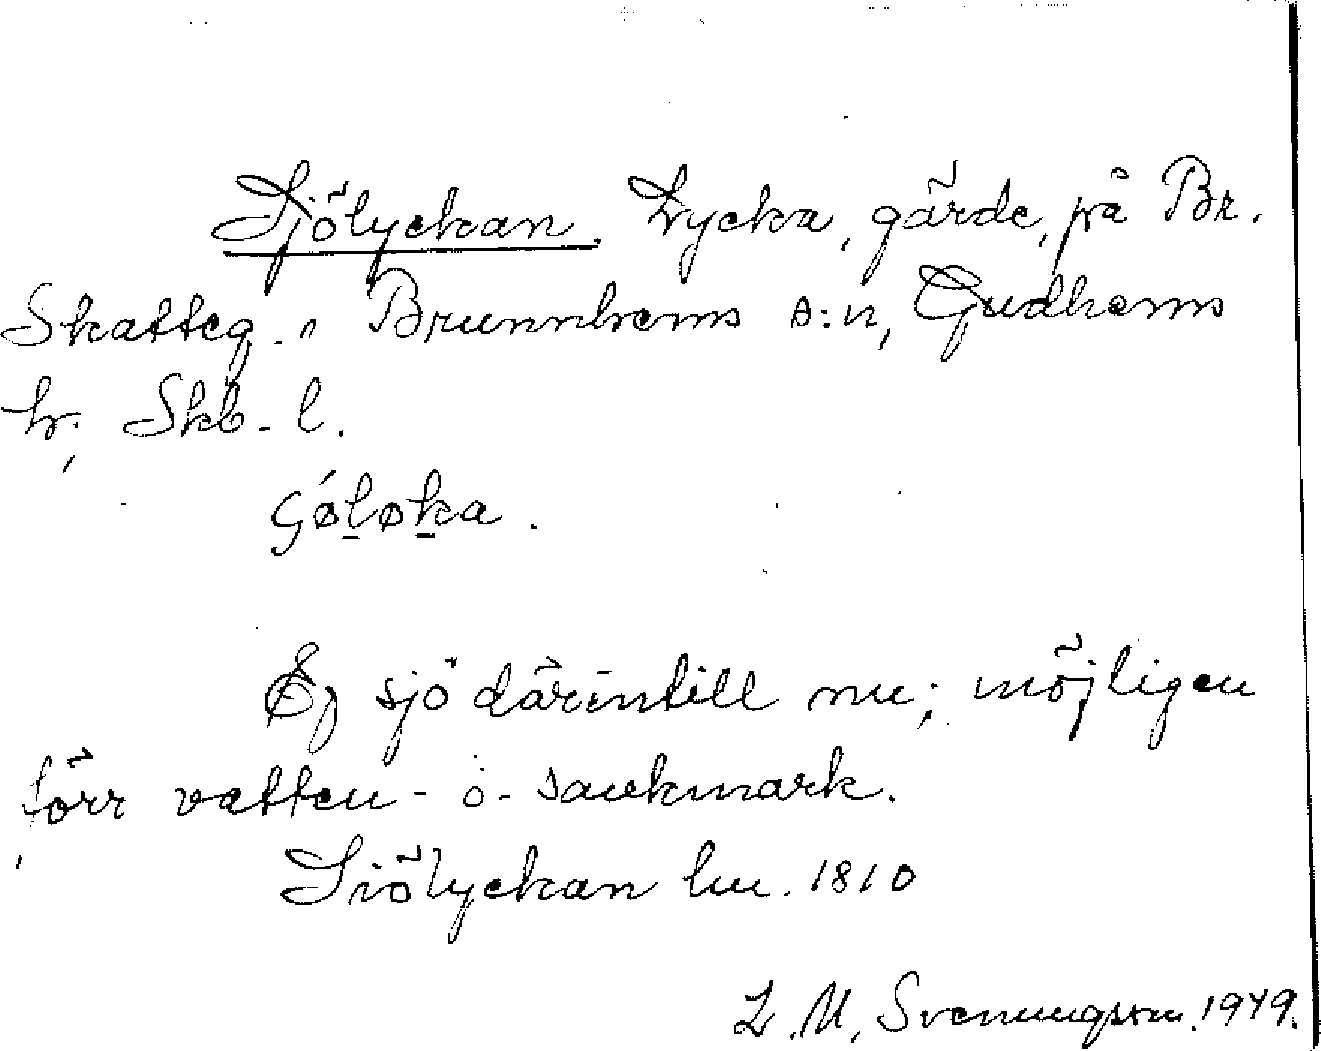 Sjölyckan. Lycka, gärde, på Br.
Skatteg. " Brunnhems s:n, Gudhems
h., Skb. l.
ʂǿlɵka.
Ej sjö därintill nu; möjligen
förr vatten- o. sankmark.
Siölyckan lm. 1810
L. M. Svenungsson. 1949.